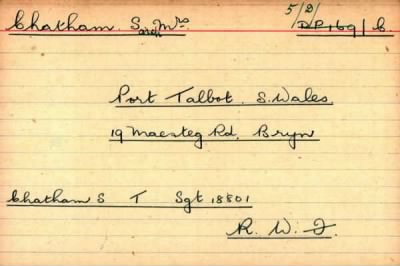 Chatham. Sarah Mrs 5/2/ DP 169/C
Port Talbot. S. Wales.
19 Maesteg Rd. Bryn
Chatham S T Sgt 18801
R. W. F.